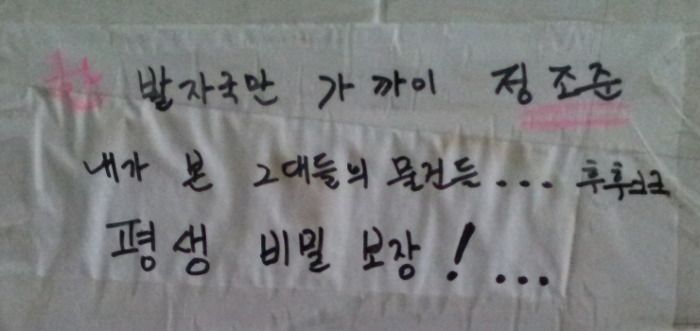 한 발자국만 가까이 정 조준
내가 본 그대들의 물건들... 후후크크
평생 비밀 보장!...